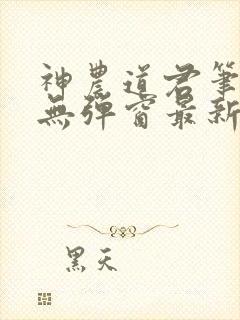 神農道君筆
無彈窗最新
黑天